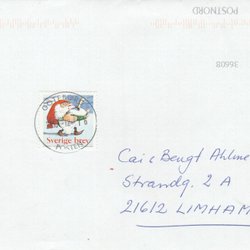 POSTNORD
33608
Sverige brev
Cai & Bengt Ahlme
Strandg. 2 A
21612 LIMHAM